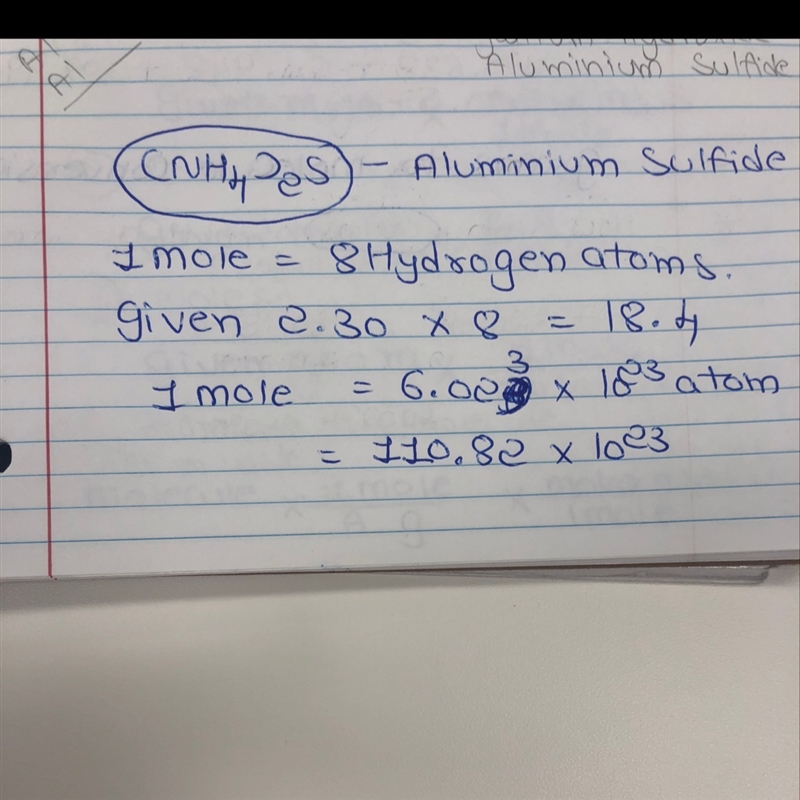 Al
Al
Aluminium Sulfide
(NH4)2S - Aluminium Sulfide
1 mole = 8 Hydrogen atoms.
given 2.30 x 8 = 18.4
1 mole = 6.023 x 10^23 atom
= 110.82 x 10^23